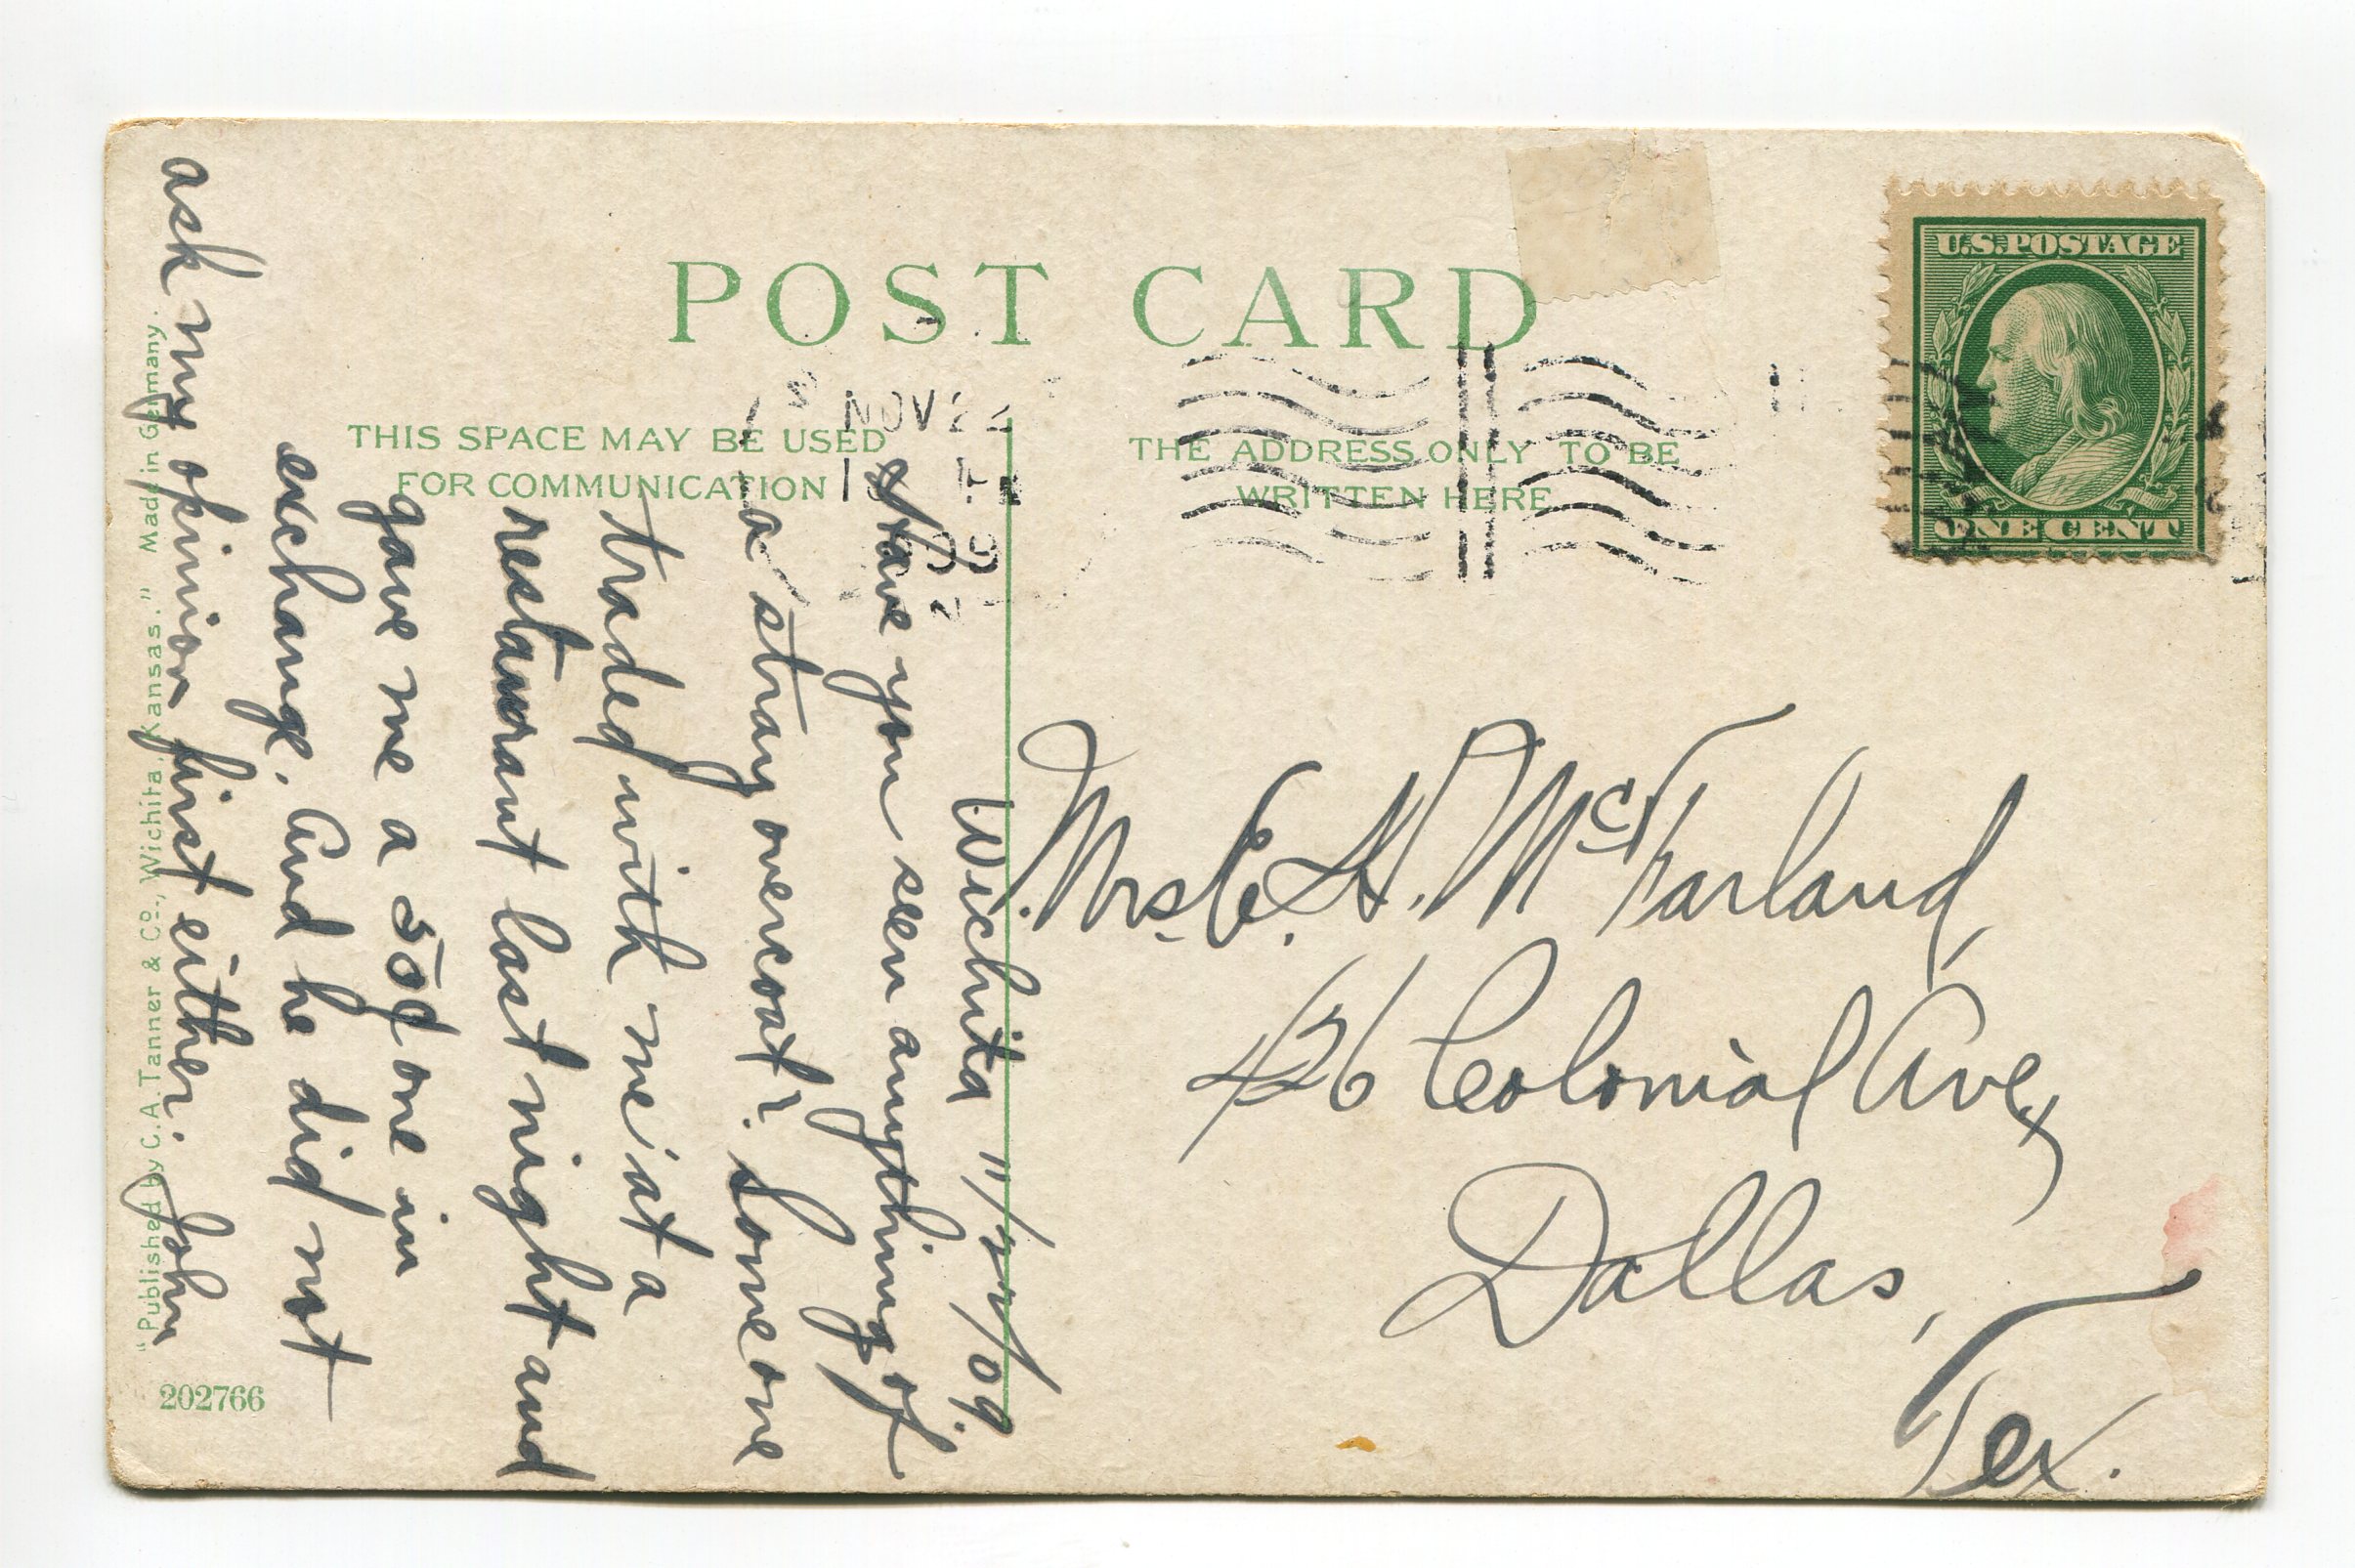 POST CARD
THIS SPACE MAY BE USED
FOR COMMUNICATION
THE ADDRESS ONLY TO BE
WRITTEN HERE
U.S. POSTAGE
ONE CENT
NOV 22
Wichita 11/22/09.
Have you seen anything of
a stray overcoat? Someone
traded with me at a
restaurant last night and
gave me a 50¢ one in
exchange. And he did not
ask my opinion first either. John
Mrs. E. H. McFarland,
426 Colonial Ave,
Dallas,
Tex.
"Published by C. A. Tanner & Co., Wichita, Kansas." Made in Germany.
202766